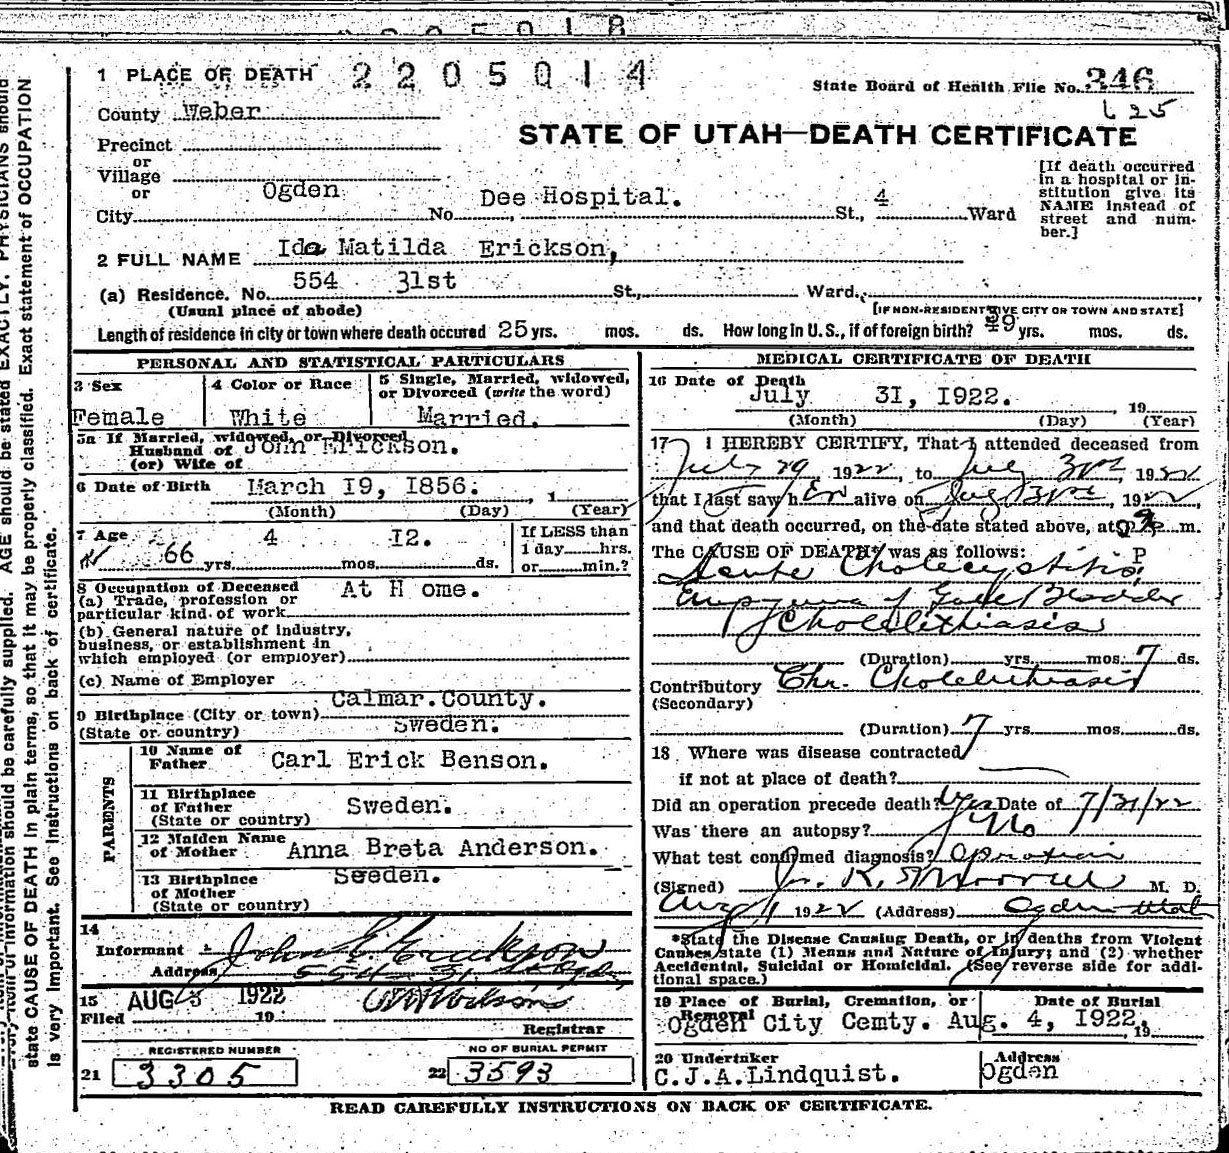 1 PLACE OF DEATH 2205014
State Board of Health File No. 246
County Weber
125
STATE OF UTAH—DEATH CERTIFICATE
Precinct
or
Village
or
City Ogden No. Dee Hospital. St., 4 Ward
[If death occurred
in a hospital or in-
stitution give its
NAME instead of
street and num-
ber.]
2 FULL NAME Ida Matilda Erickson,
(a) Residence. No. 554 31st St., Ward.
(Usual place of abode)
[IF NON-RESIDENT GIVE CITY OR TOWN AND STATE]
Length of residence in city or town where death occured 25 yrs. mos. ds. How long in U. S., if of foreign birth? yrs. mos. ds.
PERSONAL AND STATISTICAL PARTICULARS
3 Sex
Female
4 Color or Race
White
5 Single, Married, widowed,
or Divorced (write the word)
Married.
5a If Married, widowed, or Divorced
Husband of John Erickson.
(or) Wife of
6 Date of Birth March I9, I856. , 1
(Month) (Day) (Year)
7 Age 66 yrs. 4 mos. I2. ds.
If LESS than
1 day hrs.
or min.?
8 Occupation of Deceased At H ome.
(a) Trade, profession or
particular kind of work
(b) General nature of industry,
business, or establishment in
which employed (or employer)
(c) Name of Employer
Calmar.County.
9 Birthplace (City or town)
(State or country) Sweden.
PARENTS
10 Name of
Father Carl Erick Benson.
11 Birthplace
of Father Sweden.
(State or country)
12 Maiden Name
of Mother Anna Breta Anderson.
13 Birthplace Seeden.
of Mother
(State or country)
14
Informant John E. Erickson
Address 554 31 St Ogden
15 AUG 3 1922
Filed 19 Wilson
Registrar
REGISTERED NUMBER
21 3305
NO OF BURIAL PERMIT
22 3593
MEDICAL CERTIFICATE OF DEATH
16 Date of Death
July 3I, I922. , 19
(Month) (Day) (Year)
17 I HEREBY CERTIFY, That I attended deceased from
July 29, 1922, to July 31st, 1922
that I last saw her alive on July 31st, 1922,
and that death occurred, on the date stated above, at 9 P m.
The CAUSE OF DEATH* was as follows:
Acute Cholecystitis,
Empyema of Gall Bladder
Cholelithiasis
(Duration) yrs. mos. 7 ds.
Contributory Chr. Cholelithiasis
(Secondary)
(Duration) 7 yrs. mos. ds.
18 Where was disease contracted
if not at place of death?
Did an operation precede death? Yes Date of 7/31/22
Was there an autopsy? No
What test confirmed diagnosis? Operation
(Signed) Jos. R. Morrell M. D.
Aug 1 1922 (Address) Ogden Utah
*State the Disease Causing Death, or in deaths from Violent
Causes state (1) Means and Nature of Injury; and (2) whether
Accidental, Suicidal or Homicidal. (See reverse side for addi-
tional space.)
19 Place of Burial, Cremation, or
Removal
Ogden City Cemty.
Date of Burial
Aug. 4, I922. , 19
20 Undertaker
C.J.A.Lindquist.
Address
Ogden
READ CAREFULLY INSTRUCTIONS ON BACK OF CERTIFICATE.
information should be carefully supplied. AGE should be stated EXACTLY. PHYSICIANS should
state CAUSE OF DEATH in plain terms, so that it may be properly classified. Exact statement of OCCUPATION
is very important. See Instructions on back of certificate.